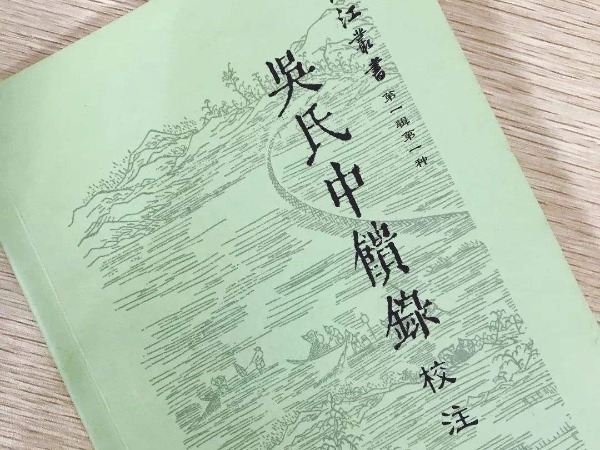 江叢書 第一辑第一种
吳氏中饋錄 校注